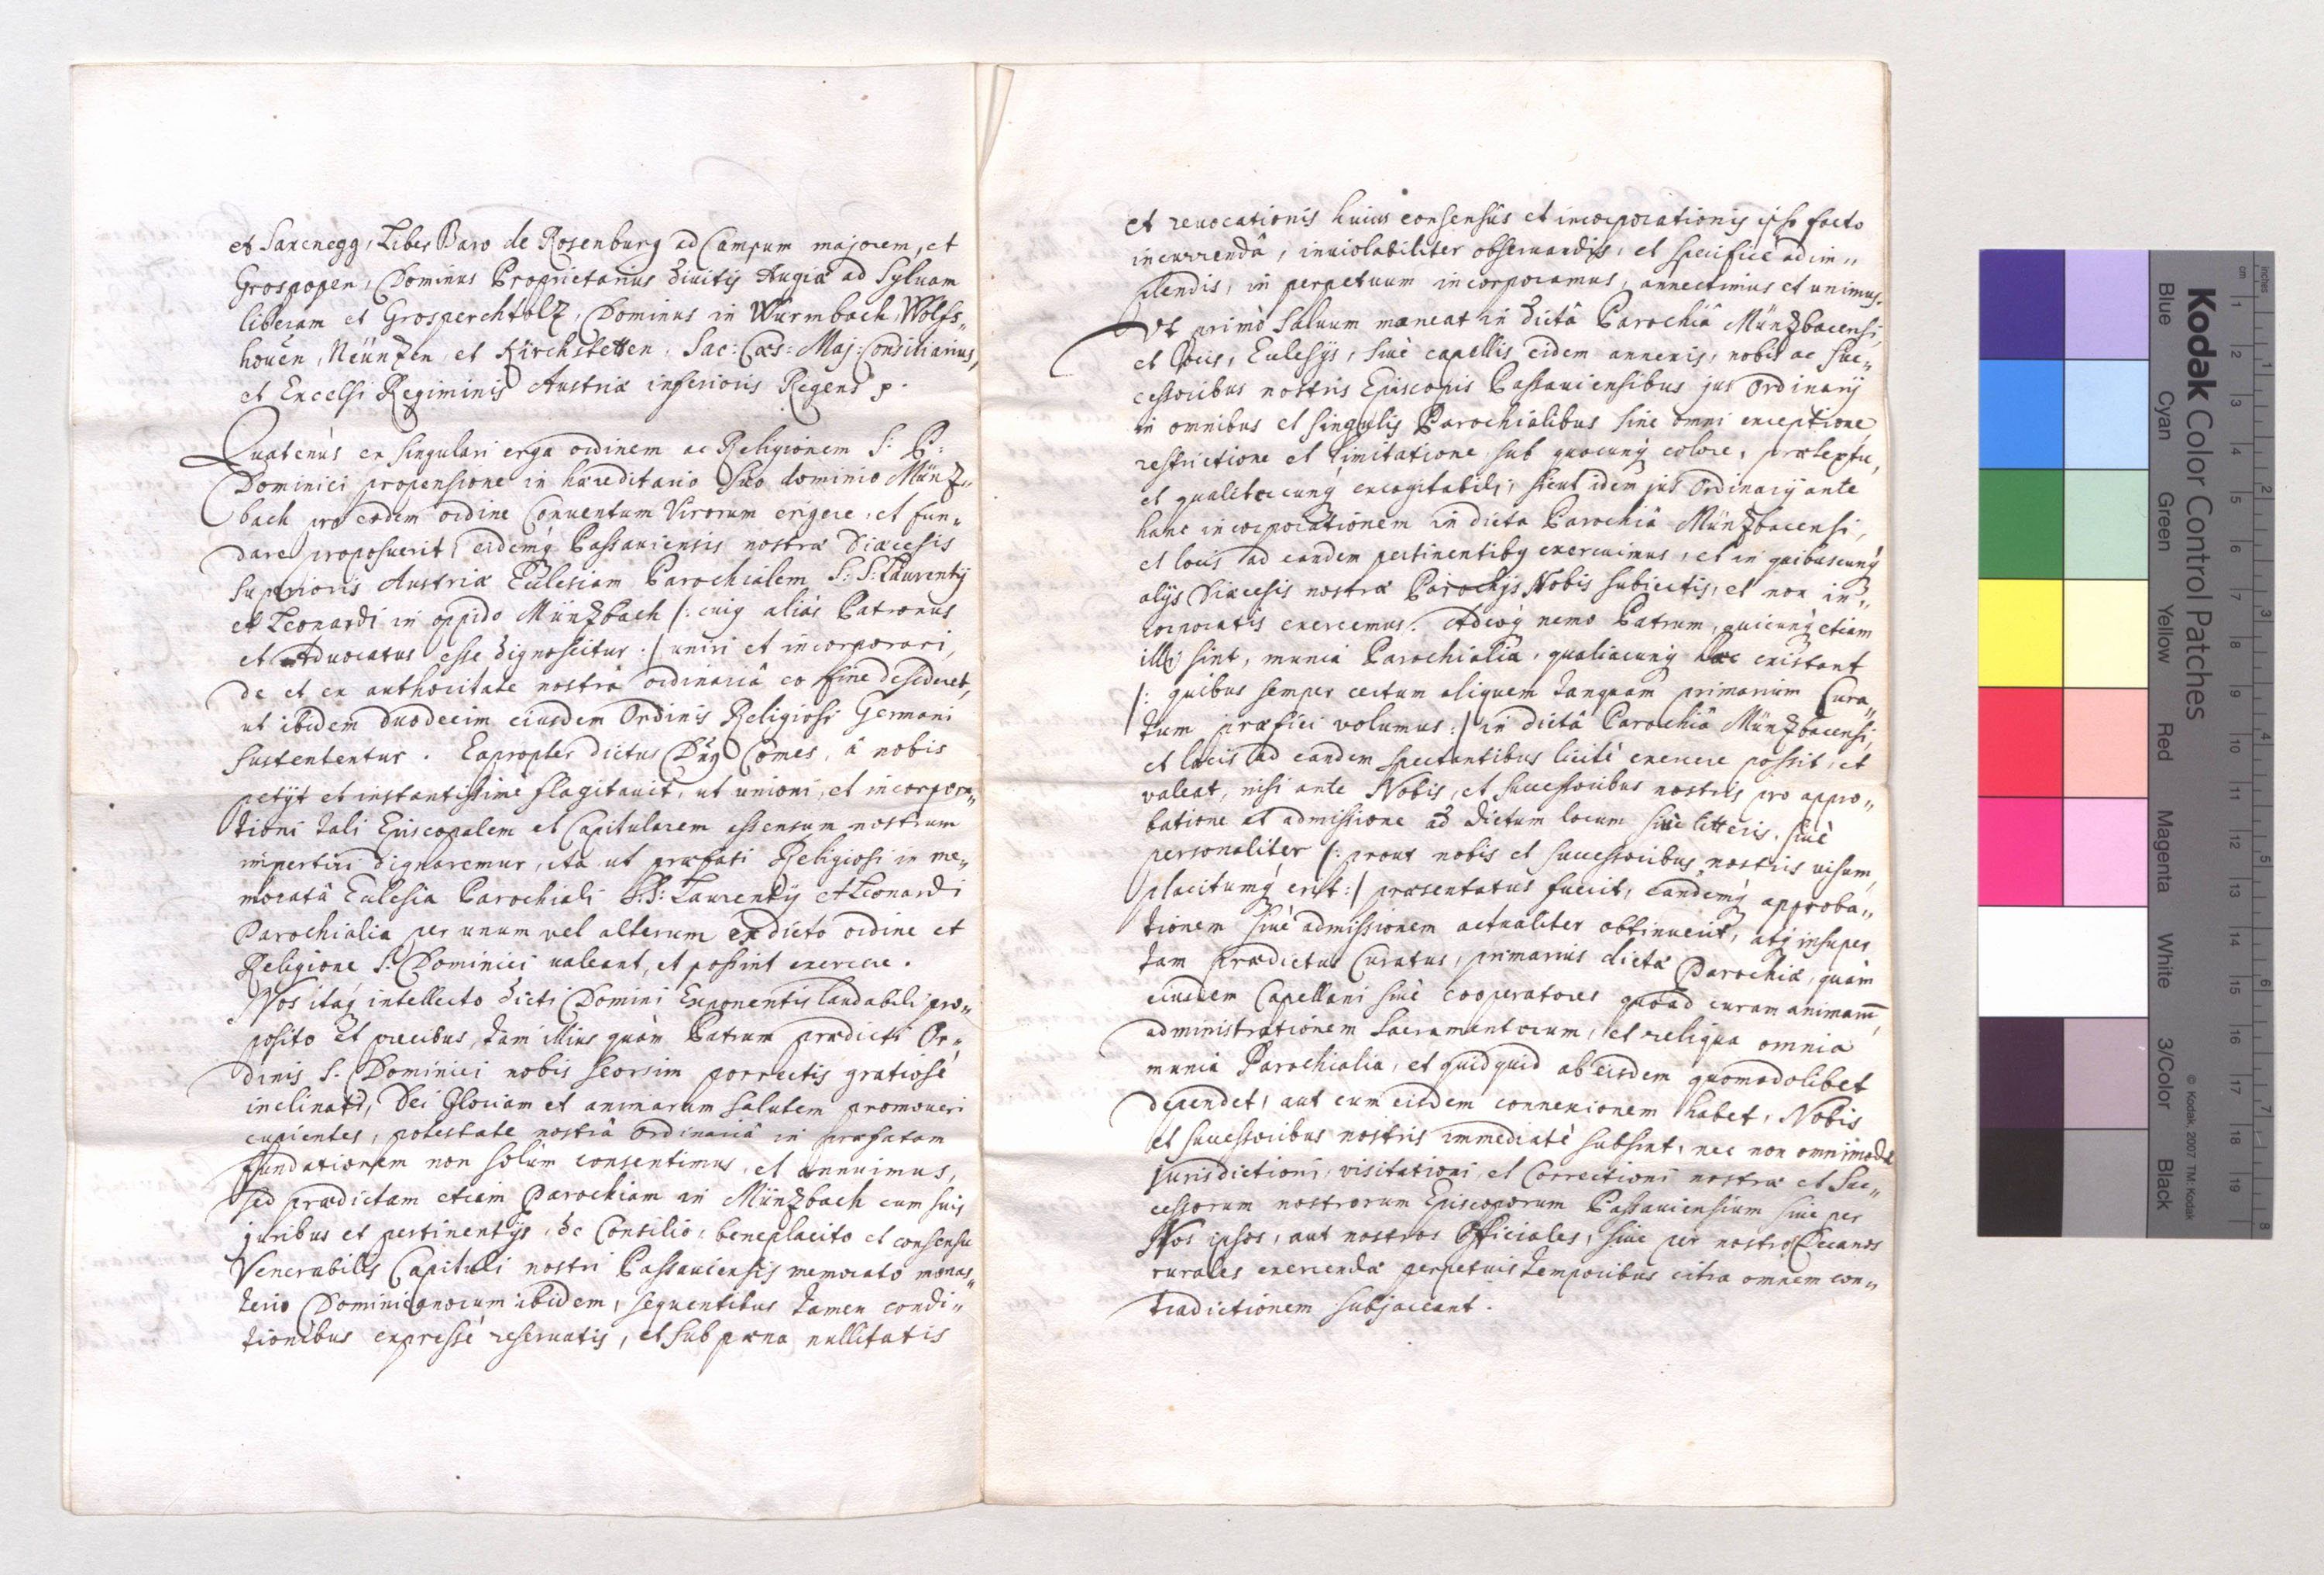 et Saxenegg, Liber Baro de Rosenburg ad Campum majorem, et
Grospopen, Dominus Proprietarius divitis Augiæ ad Sylvam
liberam et Grosperchtolz, Dominus in Wurmbach, Wolfs„
hoven, Neünzen, et Kirchstetten, Sac: Cæs: Maj: Consiliarius,
et Excelsi Regiminis Austriæ inferioris Regens p.
Quatenùs ex singulari erga ordinem ac Religionem S: P:
Dominici propensione in hæreditario suo dominio Münz„
bach pro eodem ordine Conventum Virorum erigere, et fun„
dare proposuerit, eidemq́ Passaviensis nostræ Diæcesis
Superioris Austriæ Ecclesiam Parochialem S: S: Laurentij
et Leonardi in oppido Münzbach /: cuiq aliàs Patronus
et Advocatus esse dignoscitur :/ uniri et incorporari,
de et ex authoritate nostrâ ordinariâ eo fine desideret,
ut ibidem duodecim eiusdem Ordinis Religiosi Germani
sustententur. Eapropter dictus Dn̄q Comes, â nobis
petijt et instantissime flagitavit, ut unioni, et incorpora„
tioni tali Episcopalem et Capitularem assensum nostrum
impertiri dignaremur, ita ut præfati Religiosi in me„
moratâ Ecclesia Parochiali S: S: Laurentij et Leonardi
Parochialia per unum vel alterum ex dicto ordine et
Religione S. Dominici valeant, et possint exercere.
Nos itaq́ intellecto dicti Domini Exponentis laudabili pro„
posito et precibus, tam illius quàm Patrum prædicti Or„
dinis S. Dominici nobis seorsim porrectis gratiosè
inclinati, Dei Gloriam et animarum salutem promoveri
cupientes, potestate nostrâ ordinariâ in præfatam
fundationem non solùm consentimus, et annuimus,
sed prædictam etiam Parochiam in Münzbach cum suis
juribus et pertinentijs, de Consilio, beneplacito et consensu
Venerabilis Capituli nostri Passaviensis memorato monas„
terio Dominicanorum ibidem, sequentibus tamen condi„
tionibus expressè reservatis, et sub pæna nullitatis
et revocationis huius consensûs et incorporationis ipso facto
incurrendâ, inviolabiliter observandis, et specificè adim„
plendis, in perpetuum incorporamus, annectimus et unimus.
Ut primò salvum maneat in dictâ Parochiâ Münzbacensi,
et locis, Ecclesijs, sivè capellis eidem annexis, nobis ac suc„
cessoribus nostris Episcopis Passaviensibus jus Ordinarij
in omnibus et singulis Parochialibus sine omni exceptione,
restrictione et limitatione sub quocunq́ colore, prætextu,
et qualitercunq́ excogitabili, sicut idem jus Ordinarij ante
hanc incorporationem in dicta Parochiâ Münzbacensi,
et locis ad eandem pertinentibq exercuimus, et in quibuscunq́
alijs Diæcesis nostræ Parochijs Nobis subiectis, et non in„
corporatis exercemus. Adeoq́ nemo Patrum, quicunq́ etiam
illi sint, munia Parochialia, qualiacunq́ hæc existant
/: quibus semper certum aliquem tanquam primarium Cura„
tum præfici volumus :/ in dictâ Parochiâ Münzbacensi,
et locis ad eandem spectantibus licitè exercere possit, et
valeat, nisi ante Nobis, et successoribus nostris pro appro„
batione et admissione ad dictum locum sivè litteris, sivè
personaliter /: prout nobis et successoribus nostris visum,
placitumq́ erit :/ præsentatus fuerit, eandemq́ approba„
tionem sivè admissionem actualiter obtinuerit, atq́ insuper
tam prædictus Curatus, primarius dictæ Parochiæ, quàm
eiusdem Capellani sivè cooperatores quoad curam animarū,
administrationem Sacramentorum, et reliqua omnia
munia Parochialia, et quidquid ab eisdem quomodolibet
dependet, aut cum eisdem connexionem habet, Nobis
et successoribus nostris immediatè subsint, nec non omnimodæ
jurisdictioni, visitationi, et Correctioni nostræ et suc„
cessorum nostrorum Episcoporum Passaviensium sive per
Nos ipsos, aut nostros Officiales, sive per nostros Decanos
rurales exercendæ perpetuis temporibus citra omnem con„
tradictionem subjaceant.
Kodak Color Control Patches
© Kodak, 2007 TM: Kodak
Blue Cyan Green Yellow Red Magenta White 3/Color Black
inches 1 2 3 4 5 6 7 8
cm 1 2 3 4 5 6 7 8 9 10 11 12 13 14 15 16 17 18 19